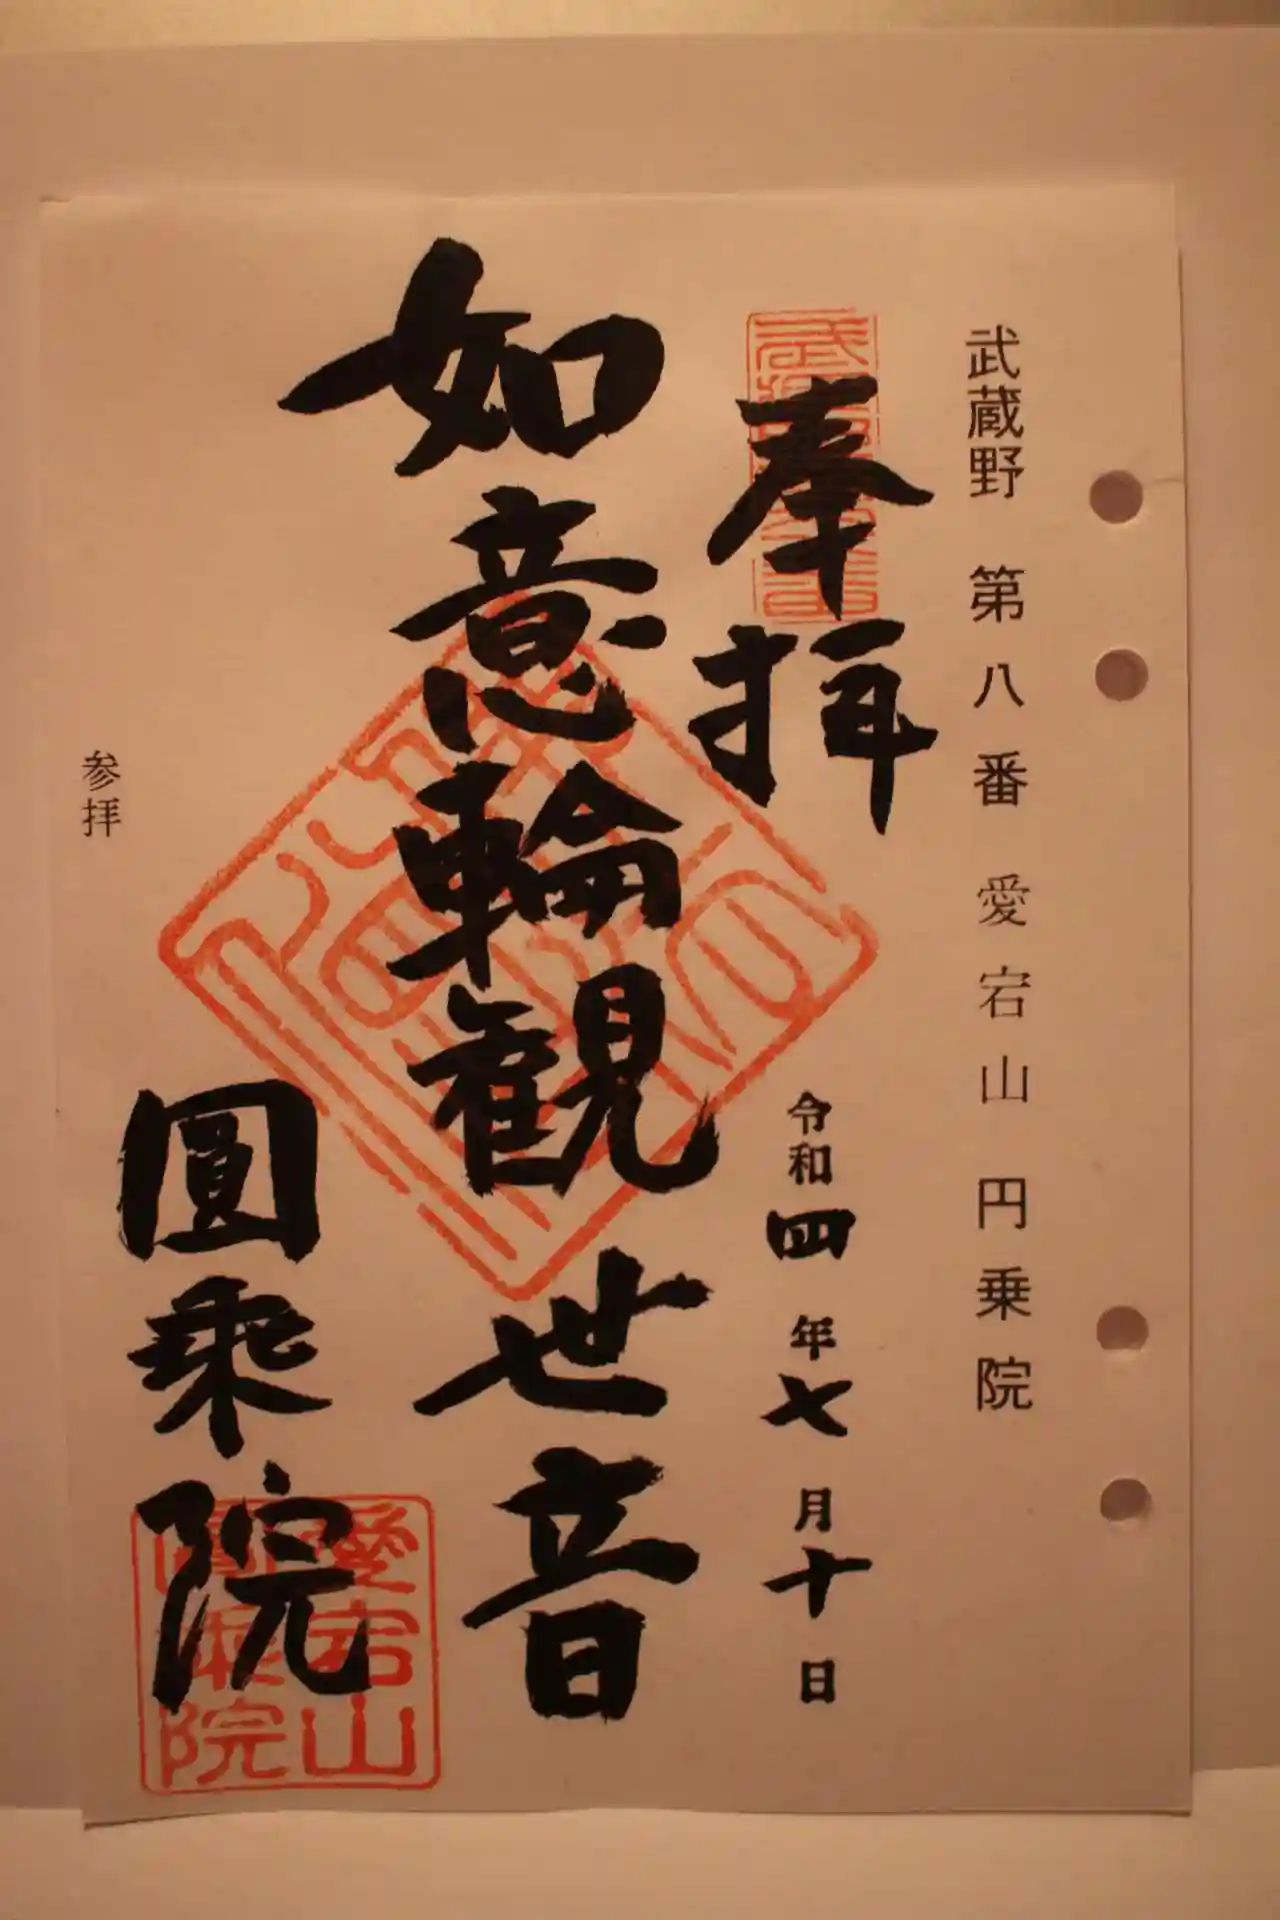 武蔵野 第八番 愛宕山 円乗院
奉拝
令和四年七月十日
如意輪観世音
圓乗院
愛宕山
圓乗院
参拝